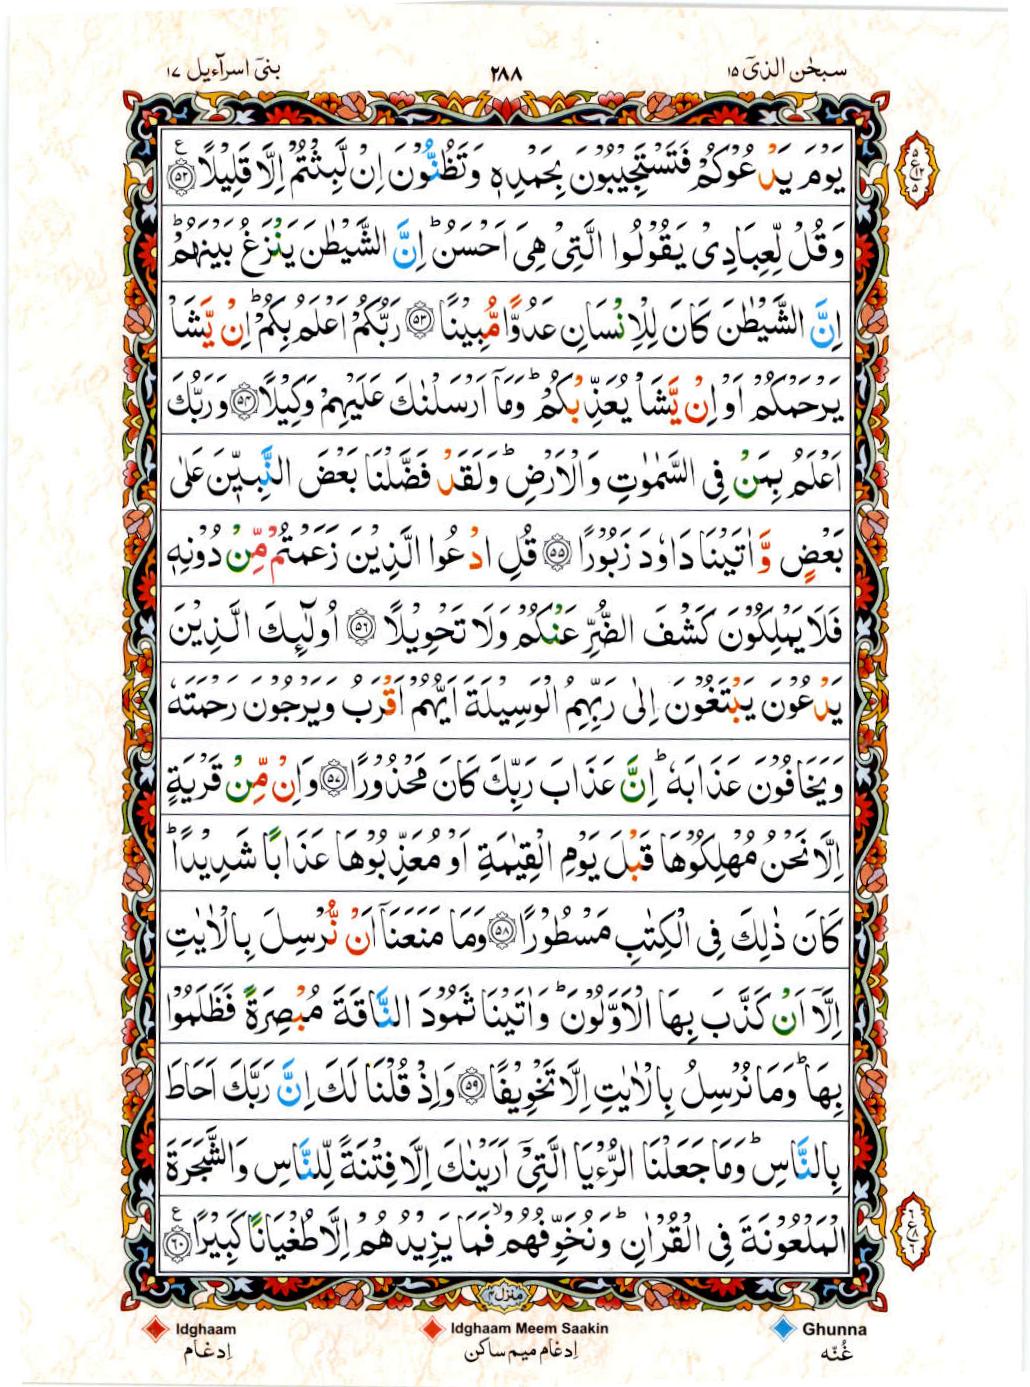 سبحٰن الذیٓ ١٥
٢٨٨
بنیٓ اسرآءیل ١٧
يَوْمَ يَدْعُوْكُمْ فَتَسْتَجِيْبُوْنَ بِحَمْدِهٖ وَتَظُنُّوْنَ اِنْ لَّبِثْتُمْ اِلَّا قَلِيْلًا ۝٥٢ ع
وَقُلْ لِّعِبَادِىْ يَقُوْلُوا الَّتِىْ هِىَ اَحْسَنُ ؕ اِنَّ الشَّيْطٰنَ يَنْزَغُ بَيْنَهُمْ ؕ
اِنَّ الشَّيْطٰنَ كَانَ لِلْاِنْسَانِ عَدُوًّا مُّبِيْنًا ۝٥٣ رَبُّكُمْ اَعْلَمُ بِكُمْ ؕ اِنْ يَّشَاْ
يَرْحَمْكُمْ اَوْ اِنْ يَّشَاْ يُعَذِّبْكُمْ ؕ وَمَاۤ اَرْسَلْنٰكَ عَلَيْهِمْ وَكِيْلًا ۝٥٤ وَرَبُّكَ
اَعْلَمُ بِمَنْ فِى السَّمٰوٰتِ وَالْاَرْضِ ؕ وَلَقَدْ فَضَّلْنَا بَعْضَ النَّبِيّٖنَ عَلٰى
بَعْضٍ وَّاٰتَيْنَا دَاوٗدَ زَبُوْرًا ۝٥٥ قُلِ ادْعُوا الَّذِيْنَ زَعَمْتُمْ مِّنْ دُوْنِهٖ
فَلَا يَمْلِكُوْنَ كَشْفَ الضُّرِّ عَنْكُمْ وَلَا تَحْوِيْلًا ۝٥٦ اُولٰٓئِكَ الَّذِيْنَ
يَدْعُوْنَ يَبْتَغُوْنَ اِلٰى رَبِّهِمُ الْوَسِيْلَةَ اَيُّهُمْ اَقْرَبُ وَيَرْجُوْنَ رَحْمَتَهٗ
وَيَخَافُوْنَ عَذَابَهٗ ؕ اِنَّ عَذَابَ رَبِّكَ كَانَ مَحْذُوْرًا ۝٥٧ وَاِنْ مِّنْ قَرْيَةٍ
اِلَّا نَحْنُ مُهْلِكُوْهَا قَبْلَ يَوْمِ الْقِيٰمَةِ اَوْ مُعَذِّبُوْهَا عَذَابًا شَدِيْدًا ؕ
كَانَ ذٰلِكَ فِى الْكِتٰبِ مَسْطُوْرًا ۝٥٨ وَمَا مَنَعَنَاۤ اَنْ نُّرْسِلَ بِالْاٰيٰتِ
اِلَّاۤ اَنْ كَذَّبَ بِهَا الْاَوَّلُوْنَ ؕ وَاٰتَيْنَا ثَمُوْدَ النَّاقَةَ مُبْصِرَةً فَظَلَمُوْا
بِهَا ؕ وَمَا نُرْسِلُ بِالْاٰيٰتِ اِلَّا تَخْوِيْفًا ۝٥٩ وَاِذْ قُلْنَا لَكَ اِنَّ رَبَّكَ اَحَاطَ
بِالنَّاسِ ؕ وَمَا جَعَلْنَا الرُّءْيَا الَّتِىْۤ اَرَيْنٰكَ اِلَّا فِتْنَةً لِّلنَّاسِ وَالشَّجَرَةَ
الْمَلْعُوْنَةَ فِى الْقُرْاٰنِ ؕ وَنُخَوِّفُهُمْ ۙ فَمَا يَزِيْدُهُمْ اِلَّا طُغْيَانًا كَبِيْرًا ۝٦٠ ع
منزل ٤
Idghaam
Idghaam Meem Saakin
Ghunna
اِدغام
اِدغام میم ساکن
غُنّه